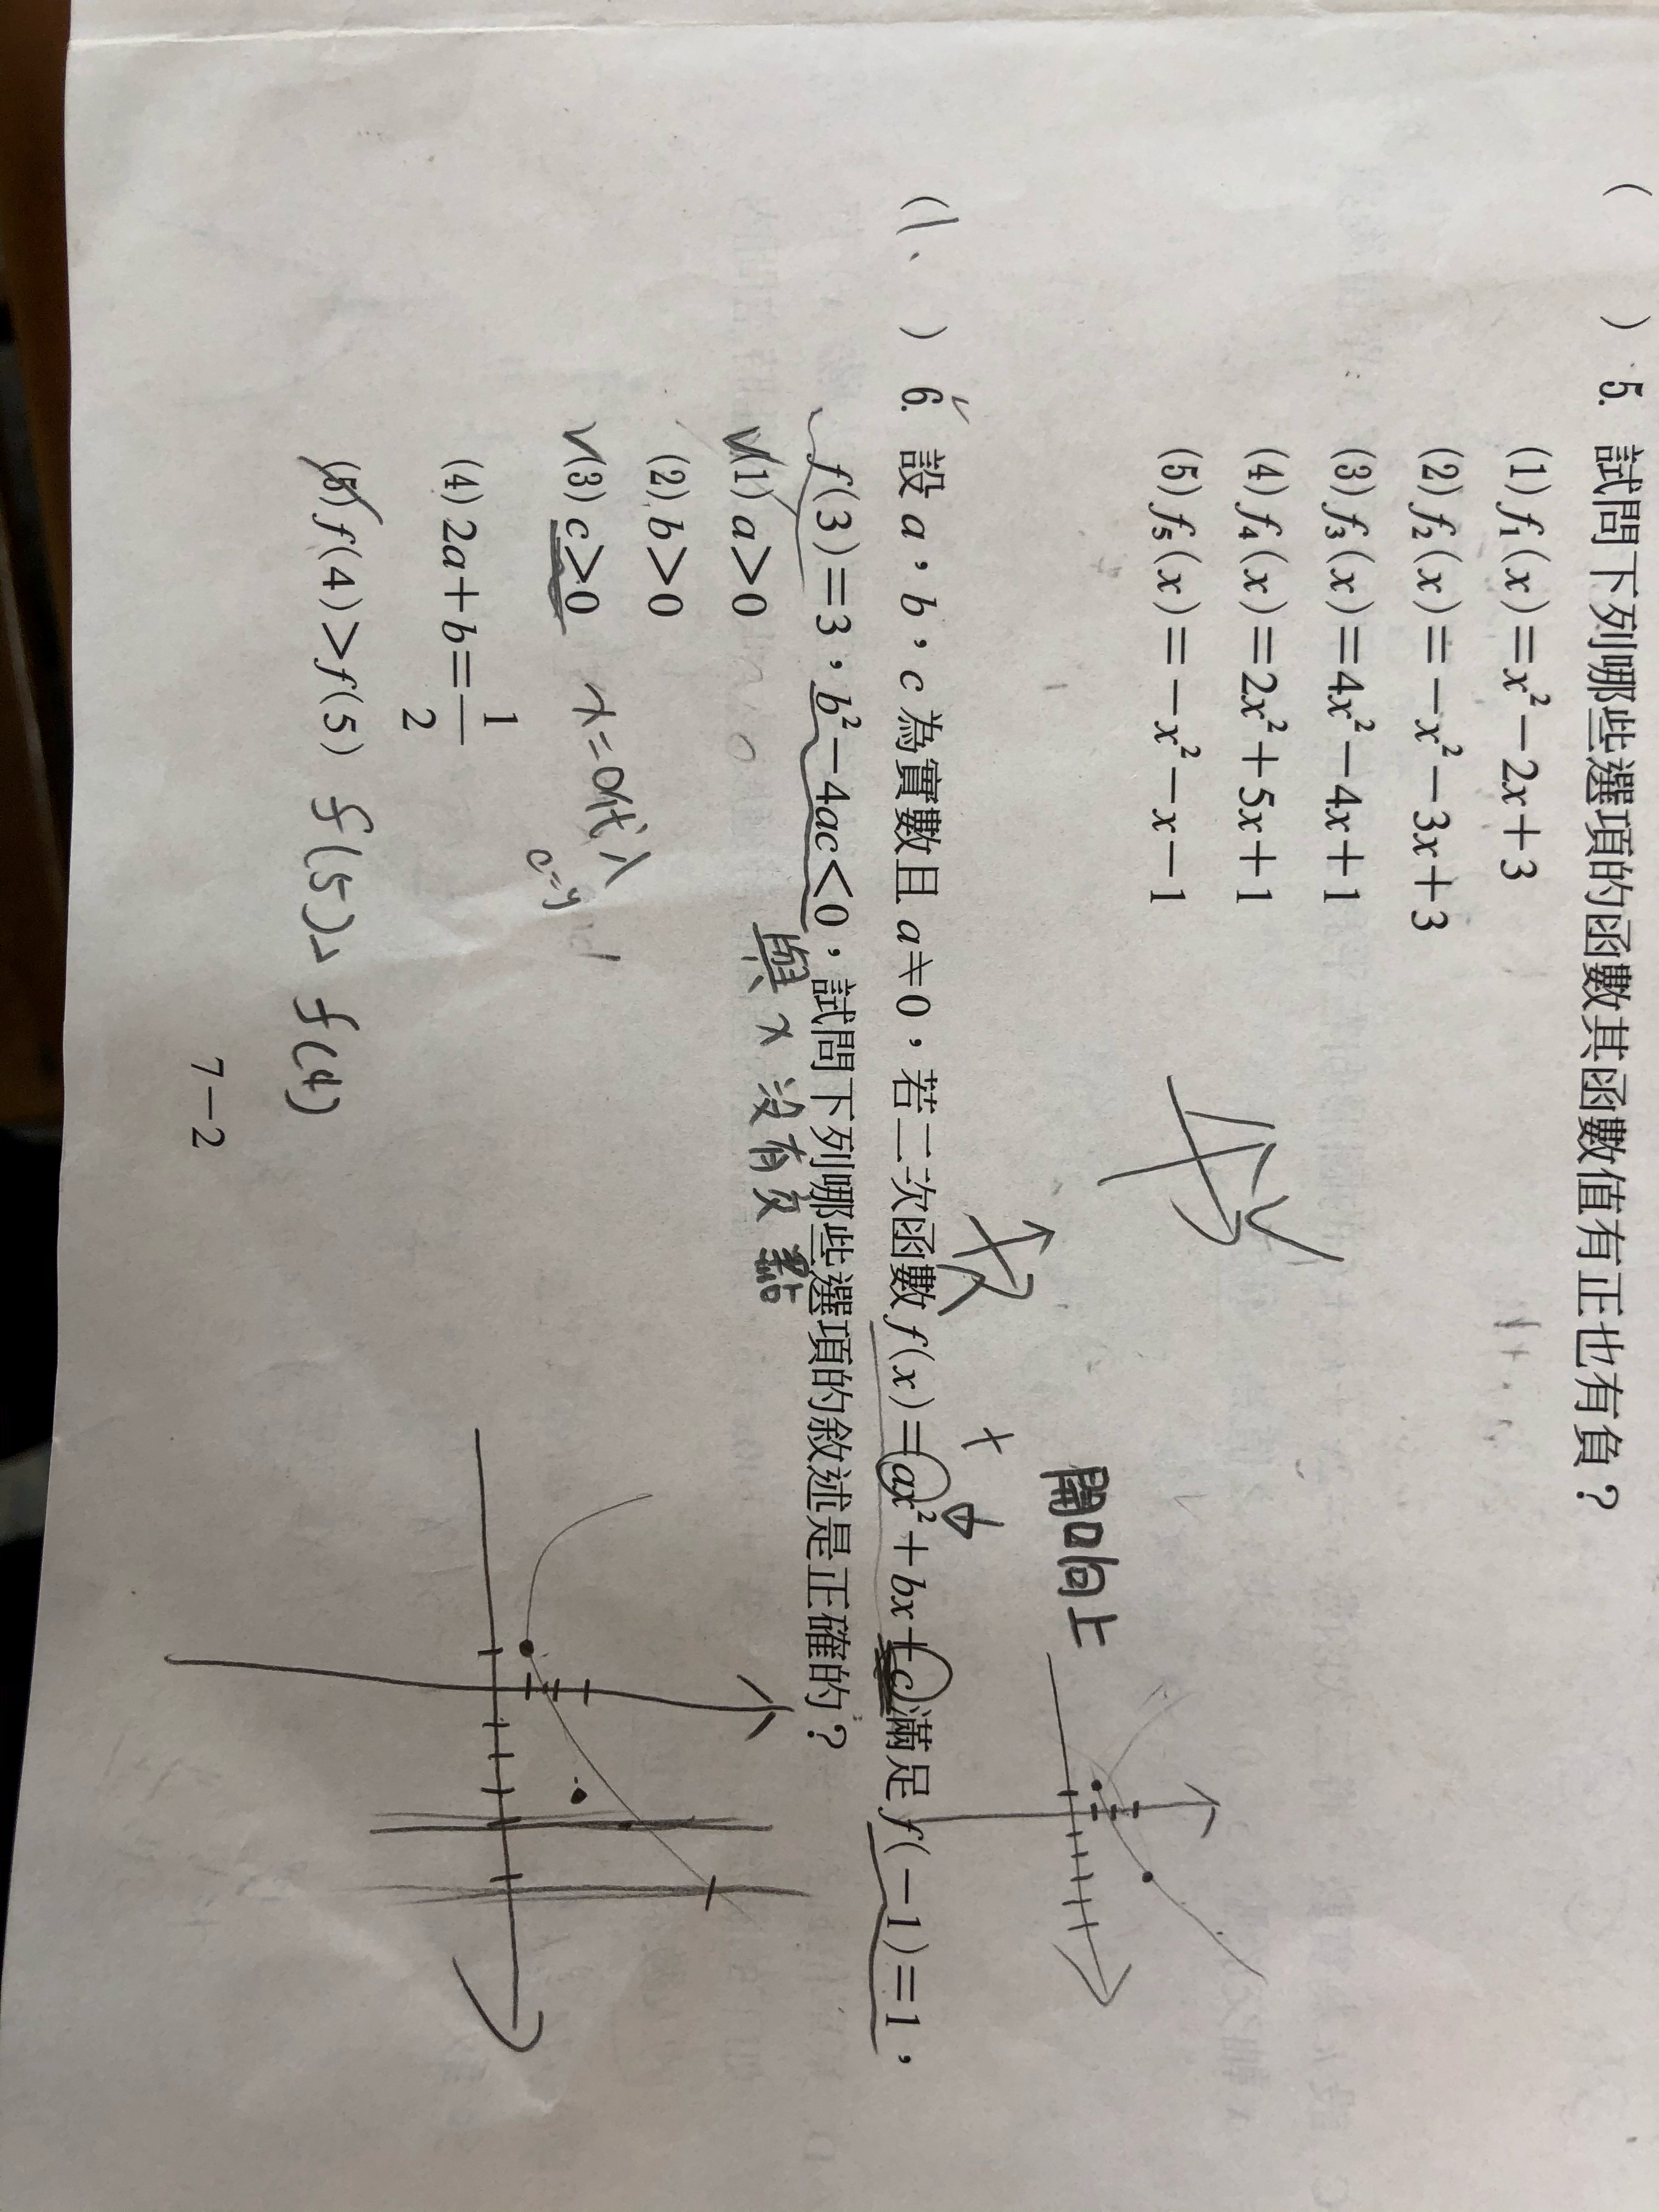 ( ) 5. 試問下列哪些選項的函數其函數值有正也有負？
(1) f₁(x)=x²－2x＋3
(2) f₂(x)=－x²－3x＋3
(3) f₃(x)=4x²－4x＋1
(4) f₄(x)=2x²＋5x＋1
(5) f₅(x)=－x²－x－1
開口向上
＋
(1、 ) 6. 設 a，b，c 為實數且 a≠0，若二次函數 f(x)=ax²＋bx＋c 滿足 f(－1)=1，
f(3)=3，b²－4ac<0，試問下列哪些選項的敘述是正確的？
與 x 沒有交點
(1) a>0
(2) b>0
(3) c>0 x=0代入
c=y
(4) 2a＋b=1/2
(5) f(4)>f(5) f(5)> f(4)
7－2